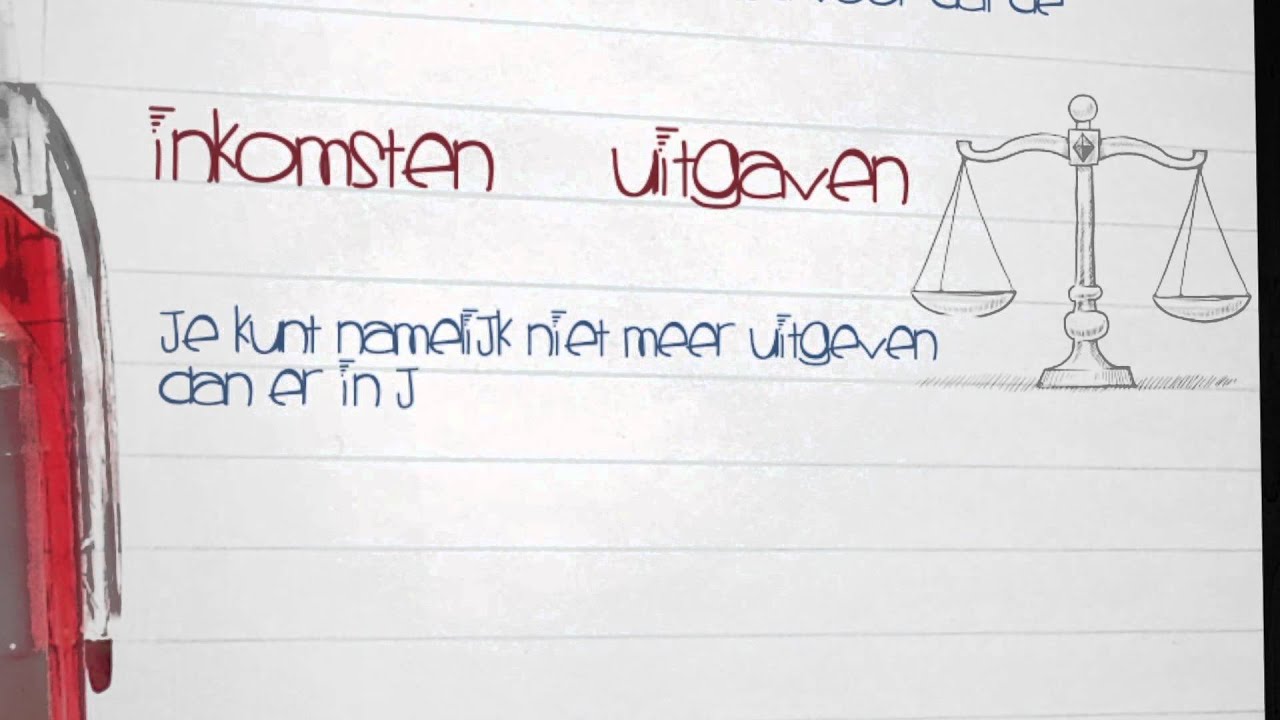 inkomsten uitgaven
Je kunt namelijk niet meer uitgeven
dan er in J